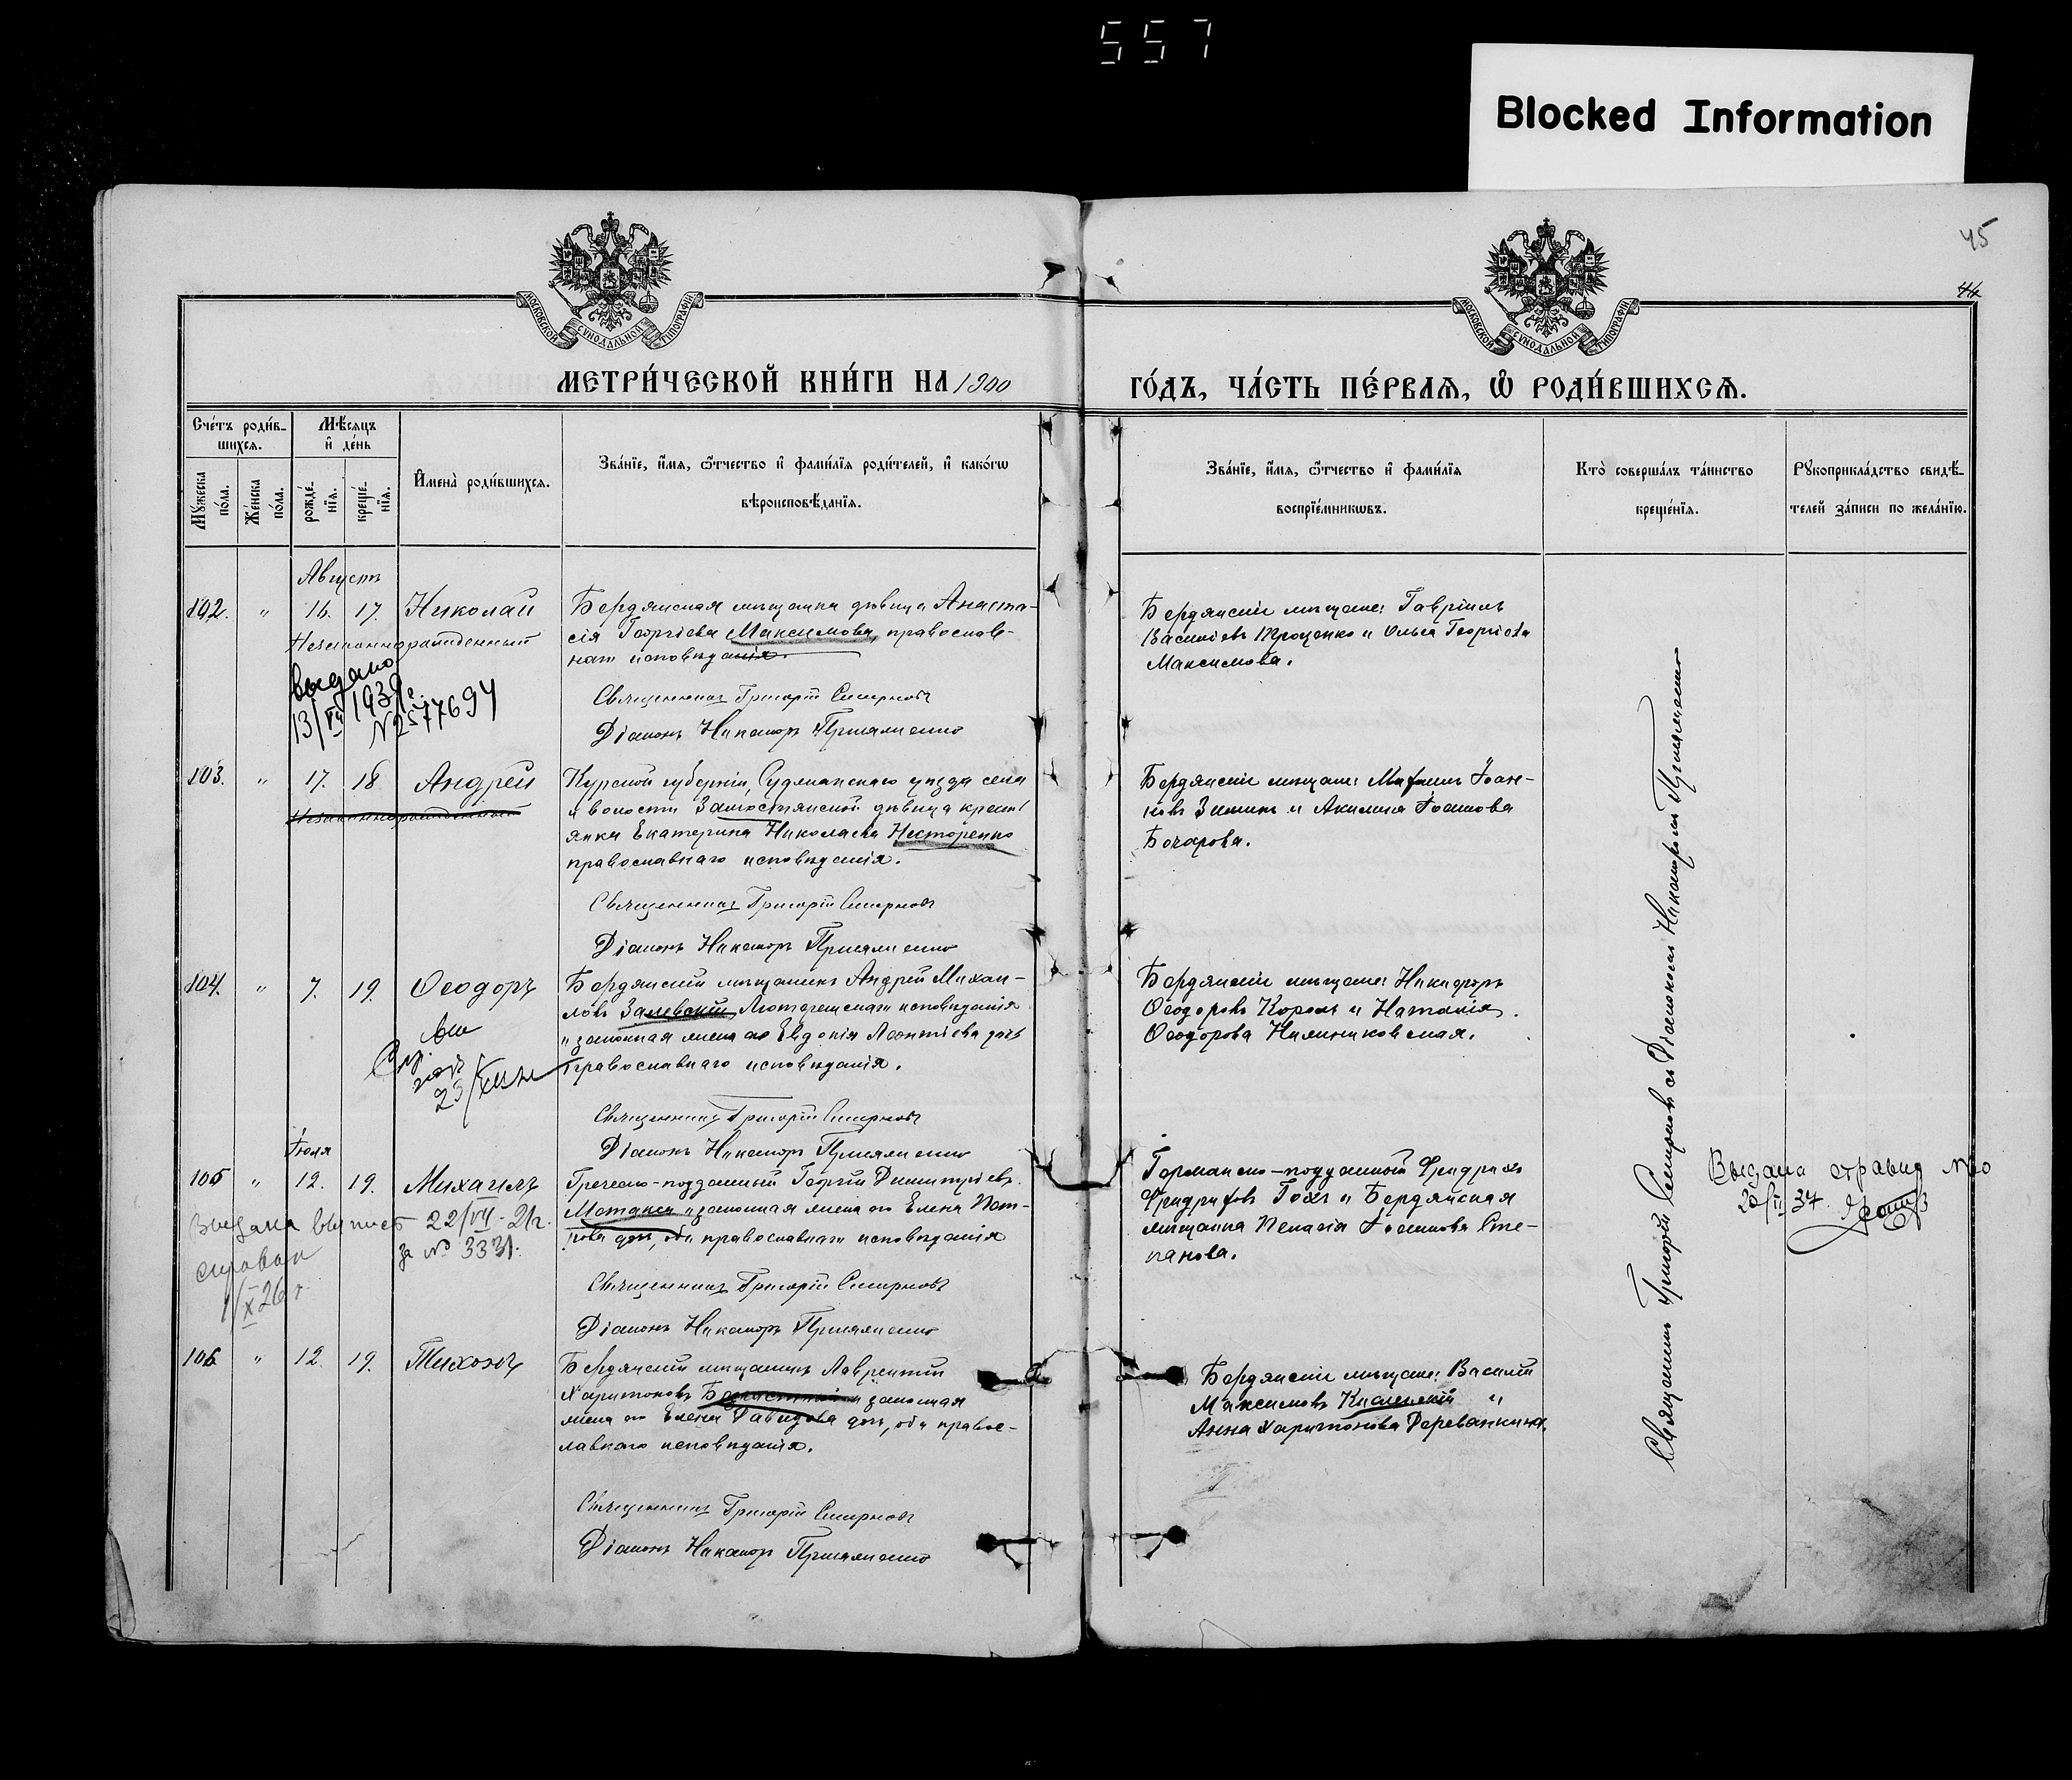 557
Blocked Information
45
44
МОСКОВСКОЙ СУНОДАЛЬНОЙ ТИПОГРАФІИ
МОСКОВСКОЙ СУНОДАЛЬНОЙ ТИПОГРАФІИ
МЕТРИ́ЧЕСКОЙ КНИ́ГИ НА 1900
ГО́ДЪ, ЧА́СТЬ ПЕ́РВАѦ, Ѡ҆ РОДИ́ВШИХСѦ.
Сче́тъ роди́в-
шихсѧ.
Мꙋ́жеска по́ла.
Же́нска по́ла.
Мѣ́сѧцъ
и҆ де́нь
рожде́-
нїѧ.
креще́-
нїѧ.
И҆мена̀ роди́вшихсѧ.
Зва́нїе, и҆́мѧ, ѻ҆́тчество и҆ фами́лїѧ роди́телей, и҆ како́гѡ
вѣроисповѣ́данїѧ.
Зва́нїе, и҆́мѧ, ѻ҆́тчество и҆ фами́лїѧ
воспрїе́мникѡвъ.
Кто̀ соверша́лъ та́инство
креще́нїѧ.
Рꙋкоприкла́дство свидѣ́-
телей за́писи по жела́нїю.
Августъ
102. " 16. 17. Николай
Незаконнорожденный
выдано
13/VII 1939 г.
N2577694
Бердянская мѣщанка дѣвица Анаста-
сія Георгіева Максимова, православ-
наго исповѣданія.
Священникъ Григорій Смирновъ
Діаконъ Никаноръ
Бердянскіе мѣщане: Гавріилъ
Василіевъ Проценко и Ольга Георгіева
Максимова.
103. " 17. 18 Андрей
Незаконнорожденный
Курской губерніи, Суджанскаго уѣзда села
и волости Замостянской дѣвица кресть-
янка Екатерина Николаева Несторенко
православнаго исповѣданія.
Священникъ Григорій Смирновъ
Діаконъ Никаноръ
Бердянскіе мѣщане: Іоан-
новъ Зиминъ и Акилина Іоаннова
Бочарова.
104. " 7. 19. Ѳеодоръ
Бердянскій мѣщанинъ Андрей Михаи-
ловъ Залевскій Лютеранскаго исповѣданія
и законная жена его Евдокія Леонтіева дочь
православнаго исповѣданія.
Священникъ Григорій Смирновъ
Діаконъ Никаноръ
Бердянскіе мѣщане: Никифоръ
Ѳеодоровъ Король и Наталія
Ѳеодорова Калиниковская.
Іюля
105 " 12. 19. Михаилъ
Выдана выпись 22/VII-21г.
за № 3331.
справка
1/X 26 г.
Греческо-подданный Георгій Димитріевъ
Матакси и законная жена его Елена Пет-
рова дочь, оба православнаго исповѣданія
Священникъ Григорій Смирновъ
Діаконъ Никаноръ
Германско-подданный Фридрихъ
Фридриховъ Гохъ и Бердянская
мѣщанка Пелагія Іоаннова Сте-
панова.
Выдана справка №
20/II 37
106. " 12. 19. Тихонъ
Бердянскій мѣщанинъ Лаврентій
Харитоновъ и законная
жена его Елена Давидова дочь, оба правос-
лавнаго исповѣданія.
Священникъ Григорій Смирновъ
Діаконъ Никаноръ
Бердянскіе мѣщане: Василій
Максимовъ и
Анна Харитонова Деревянкина.
Священникъ Григорій Смирновъ съ Діакономъ Никаноромъ